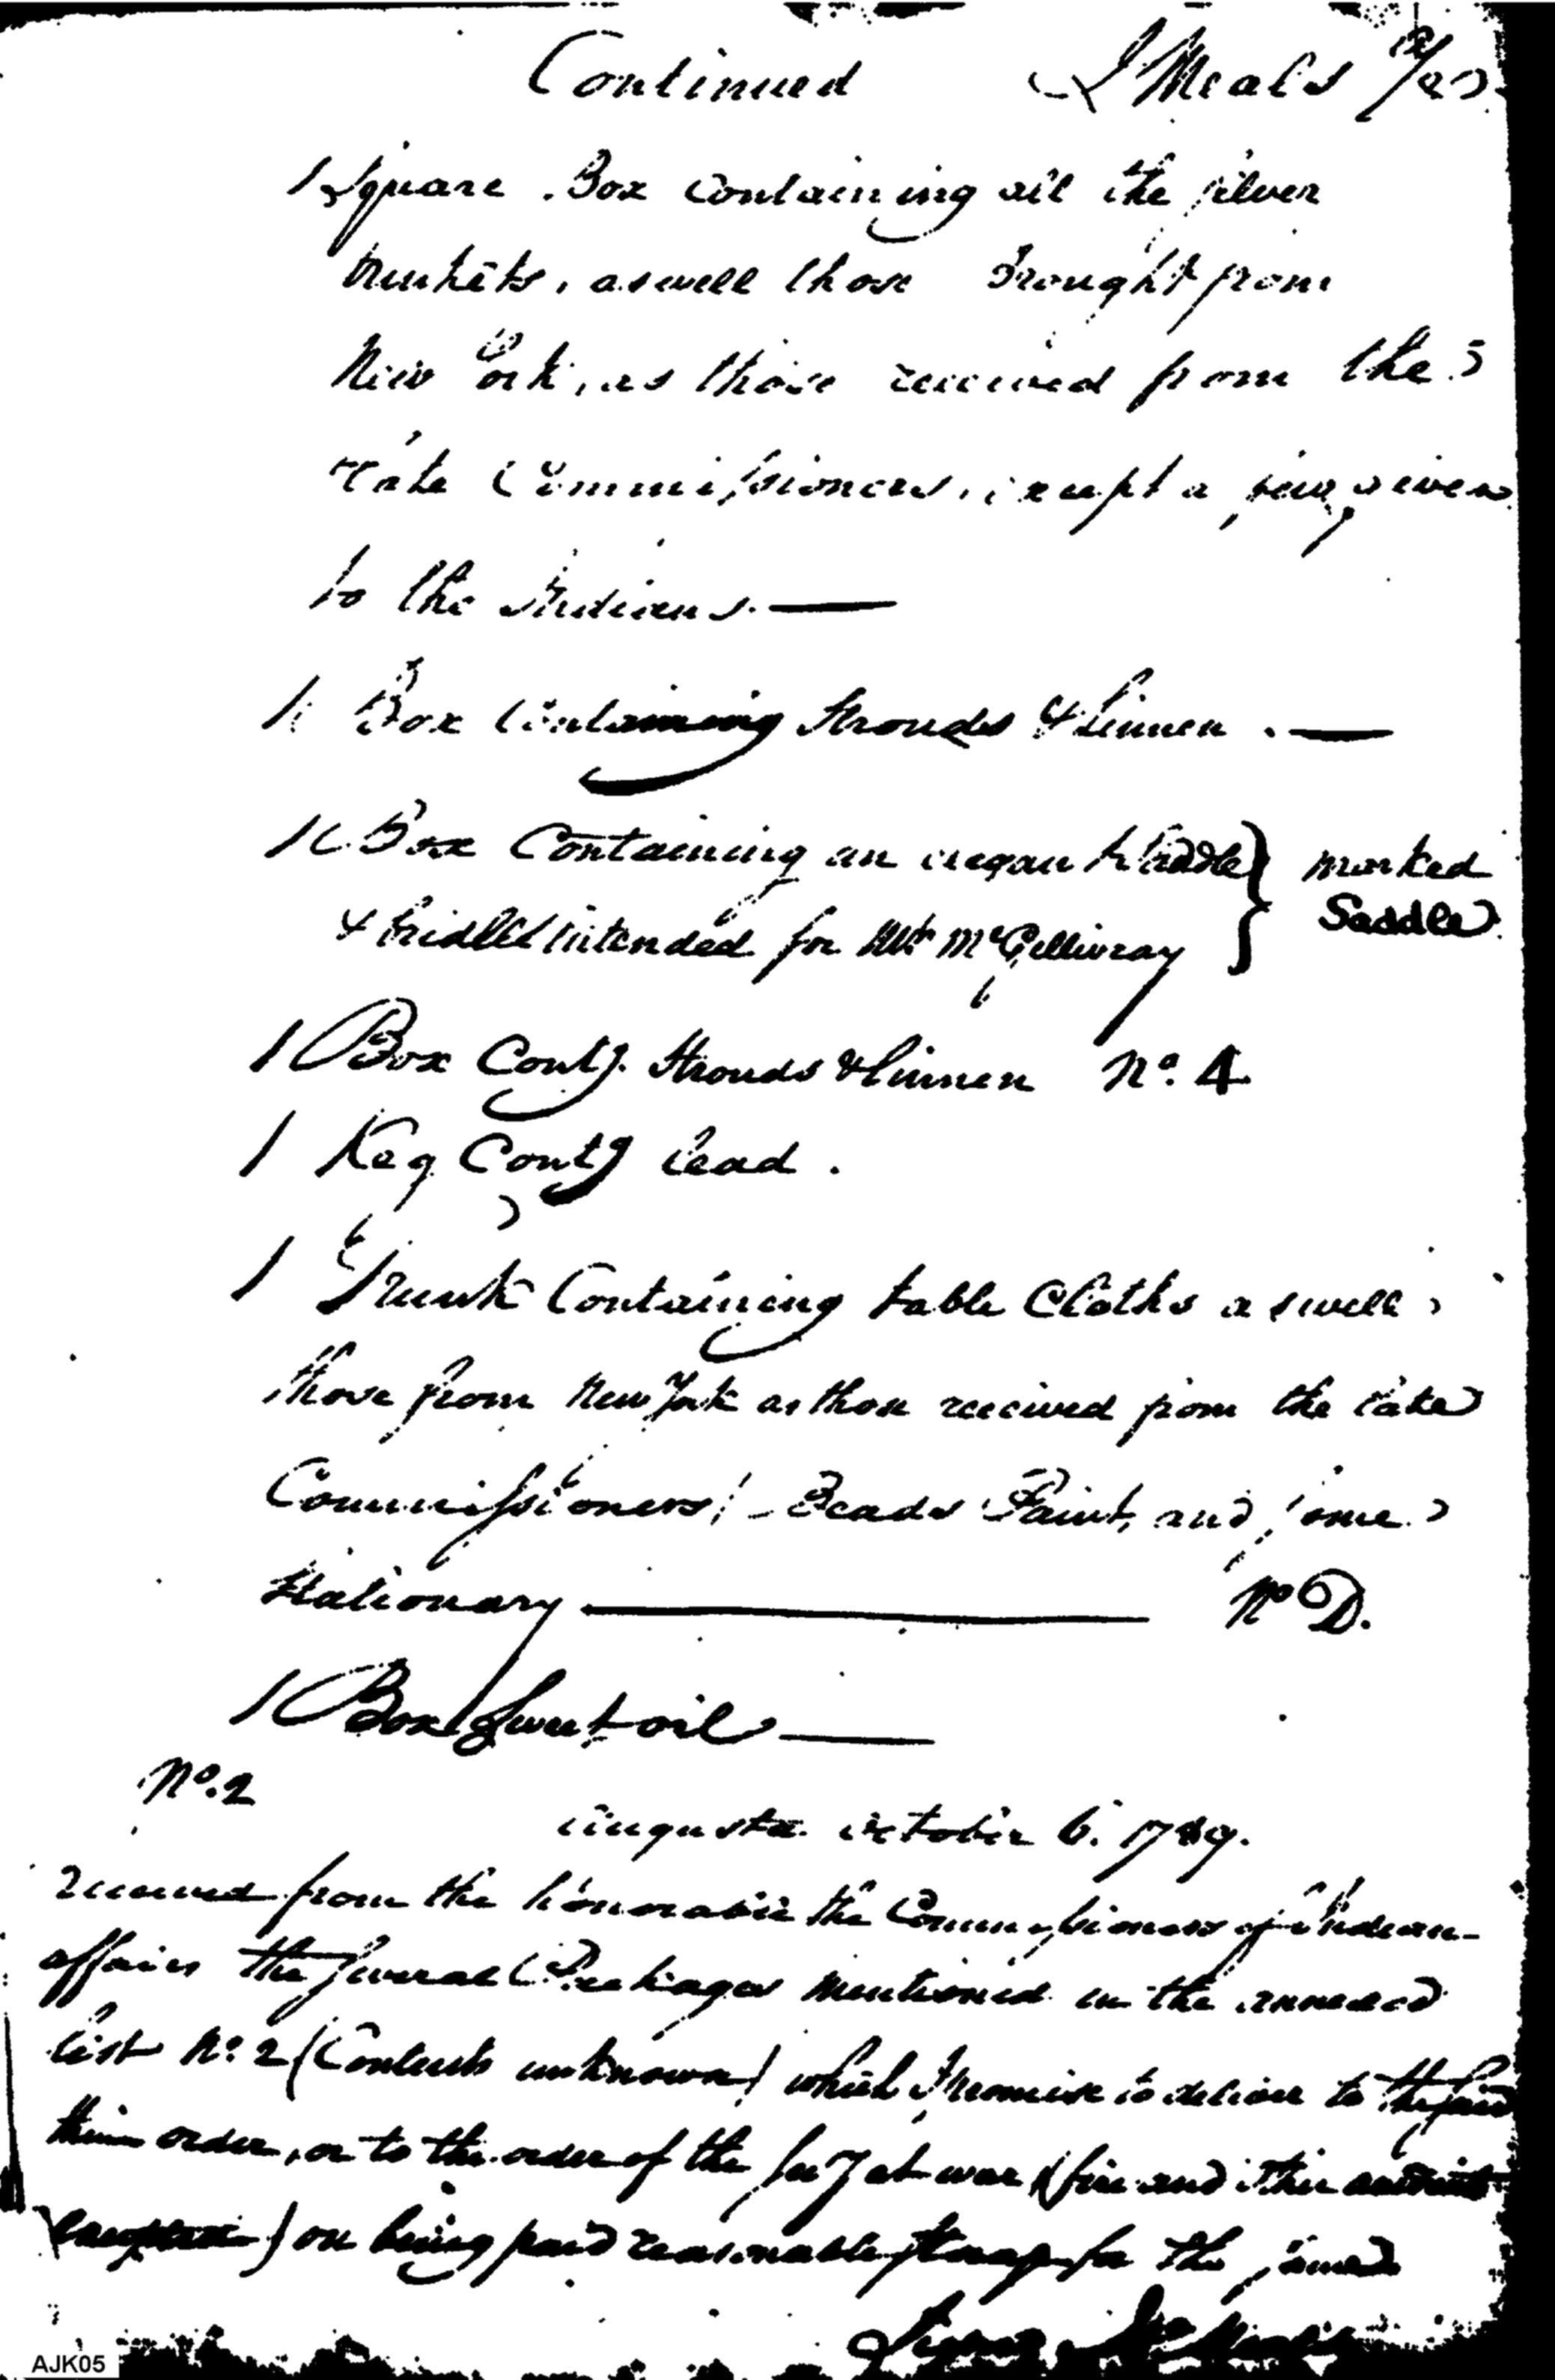 Continued J Meals
1 Square Box containing all the silver
trinkets, aswell those brought from
New York, as those received from the
late Commissioners, except a few given
to the Indians.
1 Box Containing Strouds & Linnen.
1 Box Containing an elegant Saddle } marked
& bridle intended for Mr McGillivray } Saddle
1 Box Contg. Strouds & Linnen No. 4
1 Keg Contg lead.
1 Trunk Containing table Cloths aswell
those from New York as those received from the late
Commissioners! - Beads Paint, and some
Stationary No D.
1 Box Sweet oil
No. 2
Augusta October 6. 1789.
received from the honorable the Commissioners of Indian
affairs the several Packages mentioned in the annexed
list No. 2 (Contents unknown) which I promise to deliver to the said
their order, or to the order of the Secy at war (fire and other
) on being paid reasonable storage for the same
AJK05